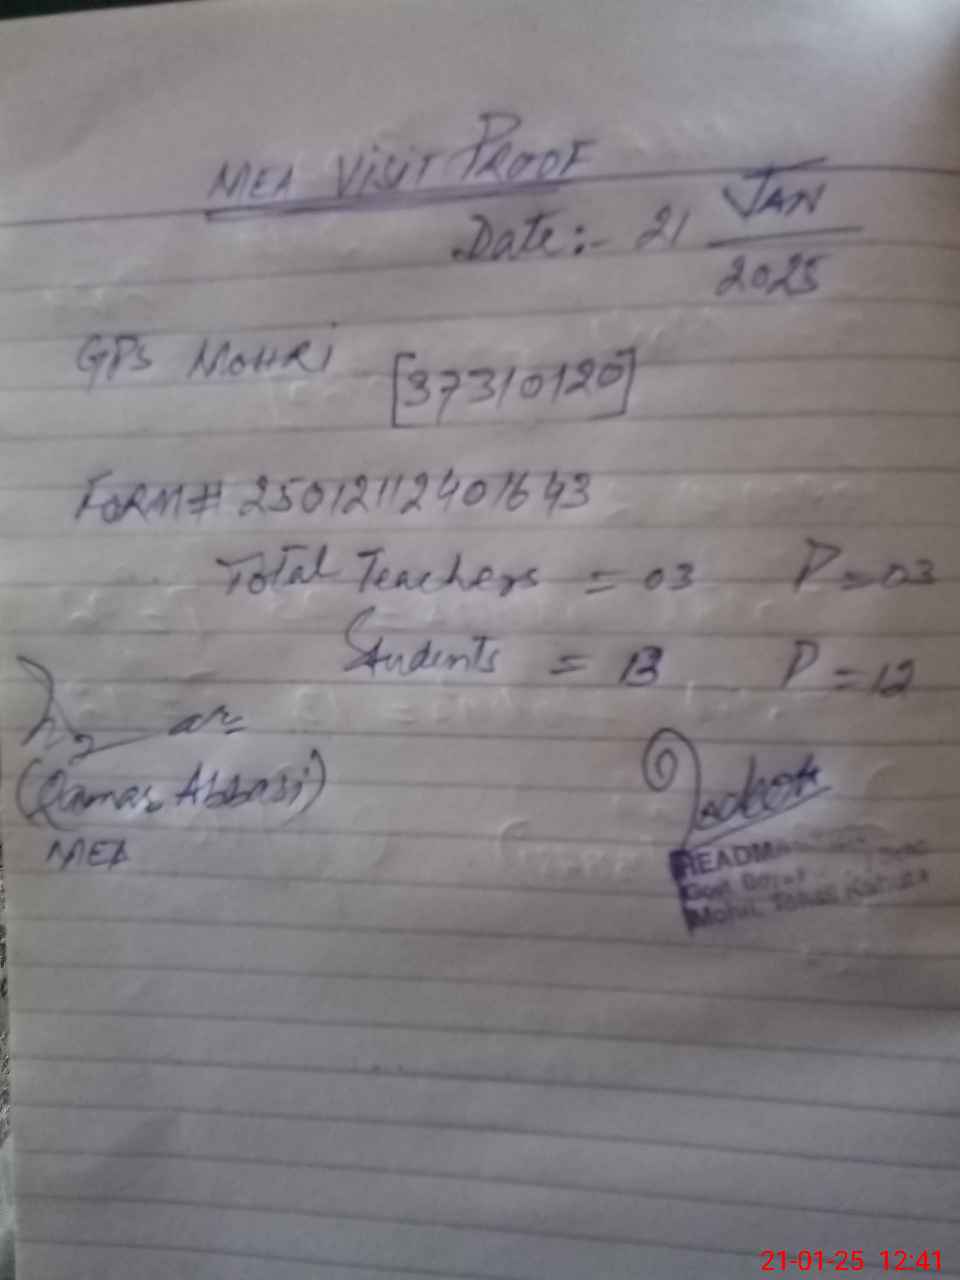 MEA VISIT PROOF
Date:- 21 JAN
2025
GPS MOHRI [37310120]
FORM# 25012112401643
Total Teachers = 03 P = 03
Students = 13 P = 12
(Qamar Abbasi)
MEA
HEADMA
Govt Boys
Mohri, Tehsil Kahuta
21-01-25 12:41